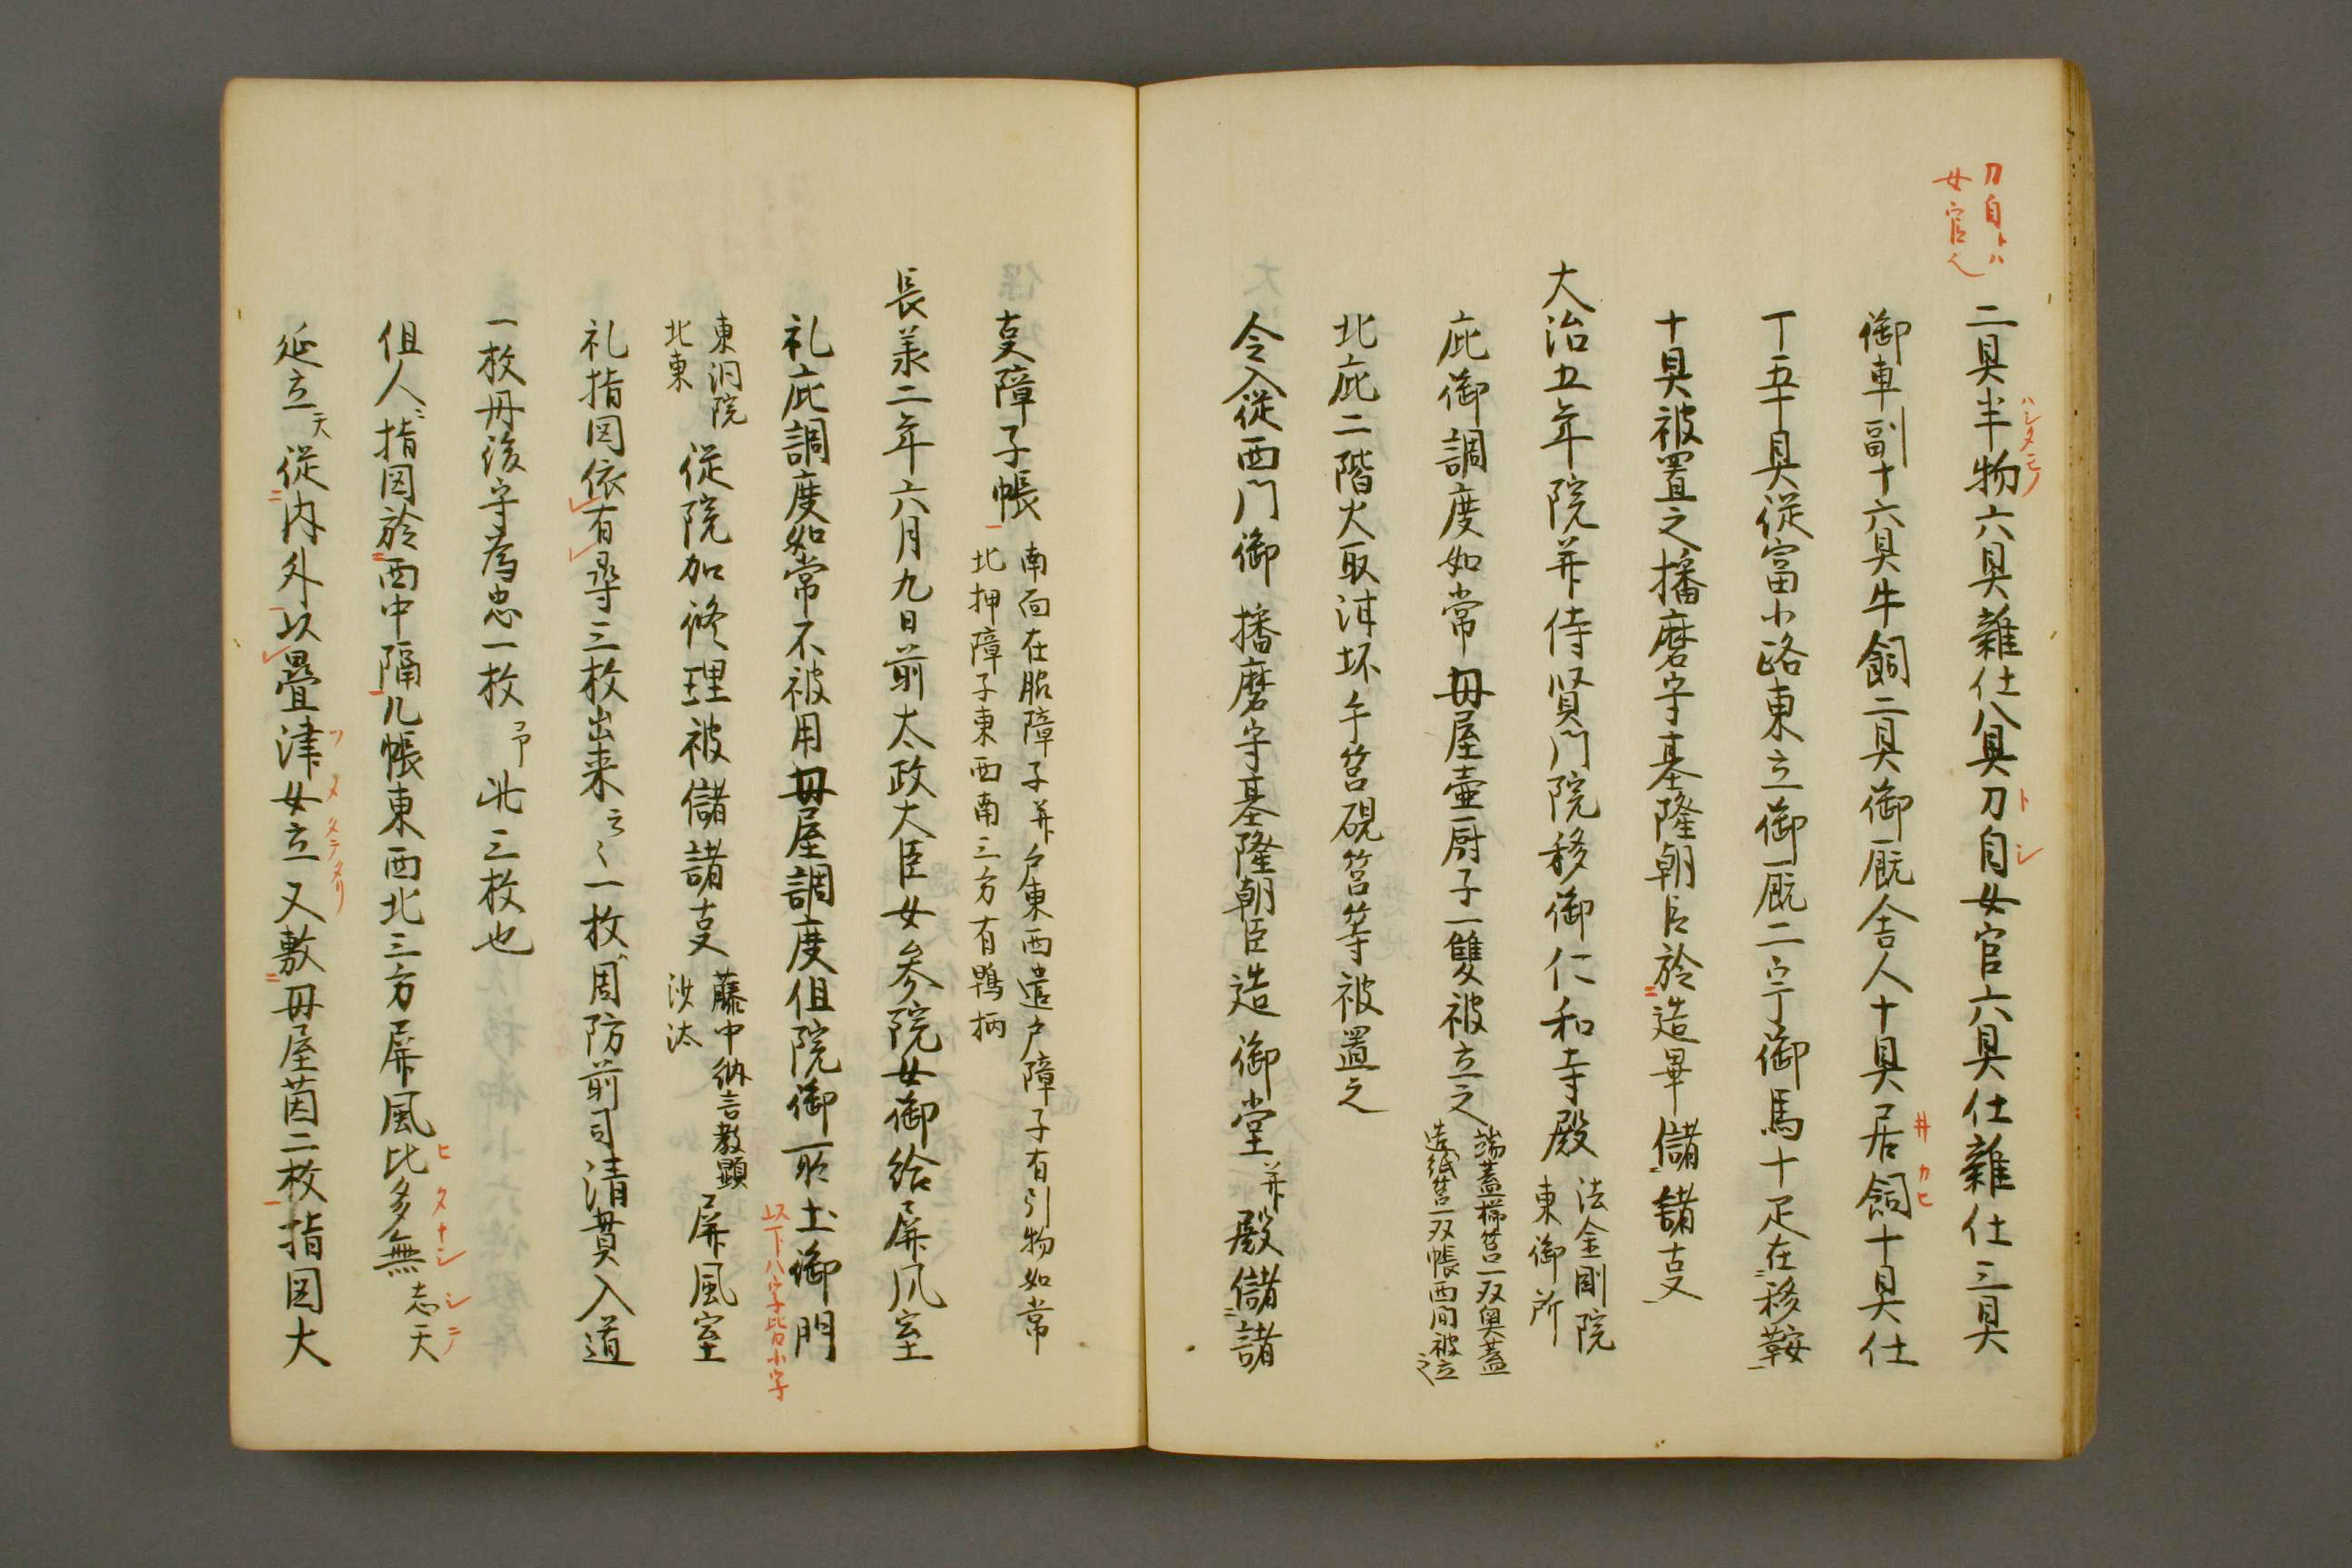 刀自トハ
女官人
二具半物六具雑仕八具刀自女官六具仕雑仕三具
ハシタモノ
トシ
御車副十六具牛飼二具御厩舎人十具居飼十具仕
井カヒ
丁五十具従富小路東立御厩二宇御馬十疋在移鞍
十具被置之播磨守基隆朝臣於造畢儲諸事
大治五年院并侍賢門院移御仁和寺殿
法金剛院
東御所
庇御調度如常母屋壷厨子一雙被立之
端蓋櫛筥一双奥蓋
造紙筥一双帳西間被立之
北庇二階火取泔坏手筥硯筥等被置之
令入従西門御 播磨守基隆朝臣造御堂并殿儲諸
事障子帳
南面在脇障子并戸東西遣戸障子有引物如常
北押障子東西南三方有鴨柄
長承二年六月九日前太政大臣女参院女御給屏風室
礼庇調度如常不被用母屋調度但院御所土御門
以下八字皆小字
東洞院
北東
従院加修理被儲諸事
藤中納言教顕
沙汰
屏風室
礼指図依有尋三枚出来云々一枚周防前司清貫入道
一枚丹後守為忠一枚予此三枚也
但人〻指図於西中隔几帳東西北三方屏風比多無志天
ヒタナシシテ
延立天従内外以畳津女立又敷母屋茵二枚指図大
ツメタテタリ